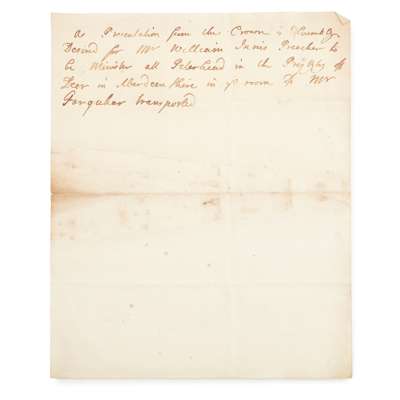 A Presentation from the Crown is Humbly
Desired for Mr William Innis Preacher to
be Minister att Peterhead in the Presbytry of
Deer in Aberdeen shire in ye room of Mr
Farquhar transported